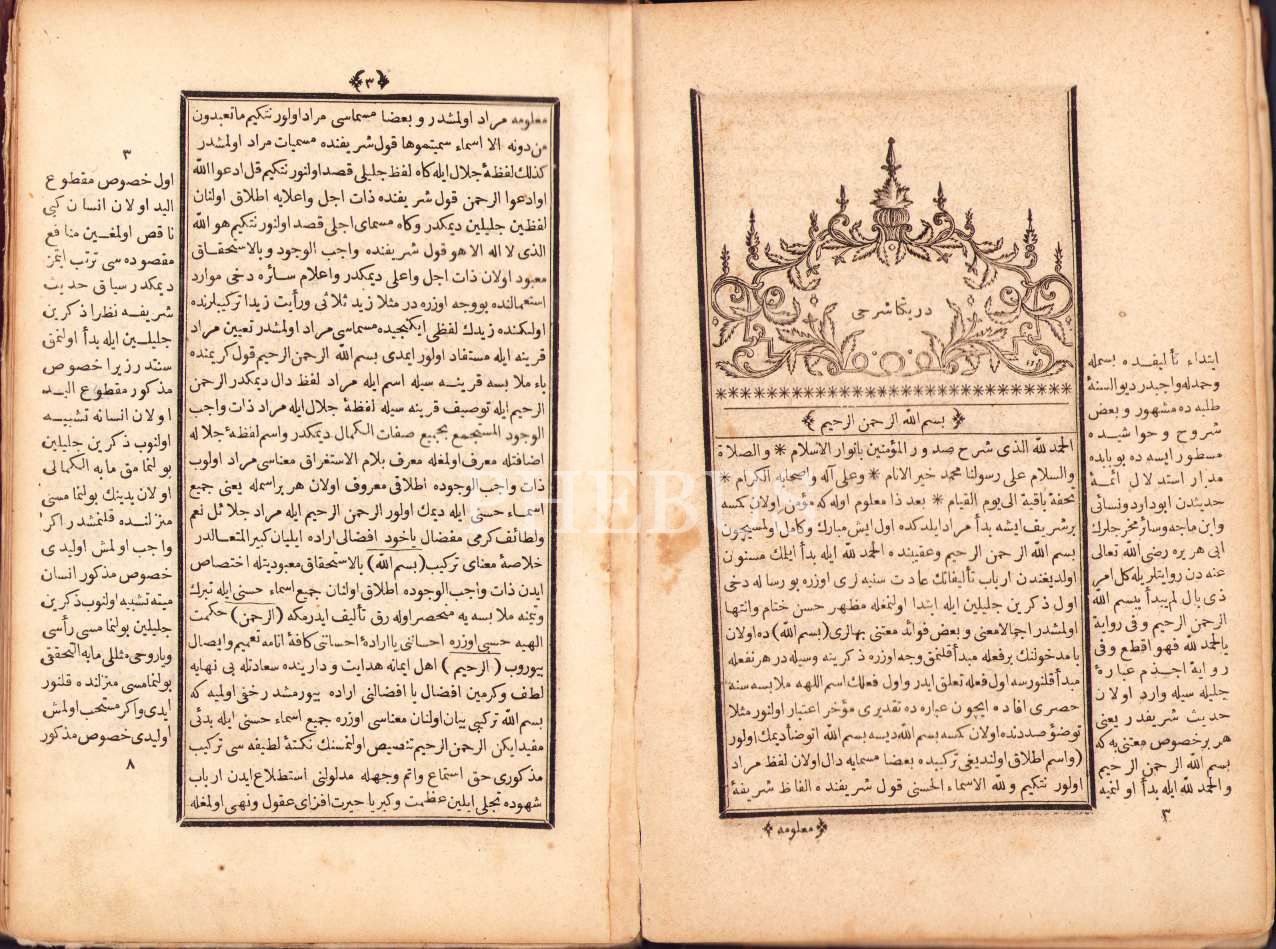 دریکتا شرحی
﴿ بسم الله الرحمن الرحیم ﴾
الحمد لله الذی شرح صدور المؤمنین بانوار الاسلام * والصلاة
والسلام علی رسولنا محمد خیر الانام * وعلی آله واصحابه الکرام *
تحفة باقیة الی یوم القیام * بعد ذا معلوم اوله که مؤمن اولان کمسه
برشریف ایشه بدأ مراد ایلدکده اول ایش مبارك وکامل ولمسیچون
بسم الله الرحمن الرحیم وعقبنده الحمد لله ایله بدأ ایلمك مسنون
اولدیغندن ارباب تألیفاتك عادت سنیه لری اوزره بو رساله دخی
اول ذکرین جلیلین ایله ابتدا اولنمغله مظهر حسن ختام وانتها
اولمشدر اجمالا معنی و بعض فوائد معتنی بهالری (بسم الله) ده اولان
با مدخولنك برفعله مبدأ قلنمق وجه اوزره ذکرینه وسیله در هر نفعله
مبدأ قلنورسه اول فعله تعلق ایدر واول فعلك اسم اللهه ملابسه سنه
حصری افاده ایچون عباره ده تقدیری مؤخر اعتبار اولنور مثلا
توضؤ صددنده اولان کمسه بسم الله دیسه بسم الله اتوضأ دیمك اولور
(واسم اطلاق اولندیغی ترکیبده بعضا مسمایه دال اولان لفظ مراد
اولور نتکیم ولله الاسماء الحسنی قول شریفنده الفاظ شریفۀ
﴿ معلومه ﴾
ابتداء تألیفده بسمله
وحمدله واجبدر دیو السنۀ
طلبه ده مشهور و بعض
شروح وحواشیده
مسطور ایسه ده بو بابده
مدار استدلال ائمۀ
حدیثدن ابو داود ونسائی
وابن ماجه وسائر مخرجلرك
ابی هریره رضی الله تعالی
عنه دن روایتلریله کل امر
ذی بال لم یبدأ ببسم الله
الرحمن الرحیم وفی روایة
بالحمد لله فهو اقطع وفی
روایة اجذم عبارۀ
جلیله سیله وارد اولان
حدیث شریفدر یعنی
هر بر خصوص معتنی به که
بسم الله الرحمن الرحیم
والحمد لله ایله بدأ اولنمیه
٣
﴿ ٣ ﴾
معلومه مراد اولمشدر و بعضا مسماسی مراد اولور نتکیم ماتعبدون
من دونه الا اسماء سمیتموها قول شریفنده مسمیات مراد اولمشدر
کذلك لفظۀ جلال ایله کاه لفظ جلیلی قصد اولنور نتکیم قل ادعوا الله
اوادعوا الرحمن قول شریفنده ذات اجل واعلایه اطلاق اولنان
لفظین جلیلین دیمکدر وکاه مسمای اجلی قصد اولنور نتکیم هو الله
الذی لا اله الا هو قول شریفنده واجب الوجود و بالاستحقاق
معبود اولان ذات اجل واعلی دیمکدر واعلام سائره دخی موارد
استعمالنده بو وجه اوزره در مثلا زید ثلاثی ورأیت زیدا ترکیبلرنده
اولکنده زیدك لفظی ایکنجیده مسماسی مراد اولمشدر تعیین مراد
قرینه ایله مستفاد اولور ایمدی بسم الله الرحمن الرحیم قول کریمنده
باء ملابسه قرینه سیله اسم ایله مراد لفظ دال دیمکدر الرحمن
الرحیم ایله توصیف قرینه سیله لفظۀ جلال ایله مراد ذات واجب
الوجود المستجمع بجمیع صفات الکمال دیمکدر واسم لفظۀ جلاله
اضافتله معرف اولمغله معرف بلام الاستغراق معناسی مراد اولوب
ذات واجب الوجوده اطلاقی معروف اولان هر بر اسمله یعنی جمیع
اسماء حسنی ایله دیمك اولور الرحمن الرحیم ایله مراد جلائل نعم
ولطائف کرمی مفضال یاخود افضالی اراده ایلیان کبیر المتعالدر
خلاصۀ معنای ترکیب (بسم الله) بالاستحقاق معبودیتله اختصاص
ایدن ذات واجب الوجوده اطلاق اولنان جمیع اسماء حسنی ایله تبرك
وتیمنه ملابسه یه منحصر اوله رق تألیف ایدرمکه (الرحمن) حکمت
الهیه حسبی اوزره احسانی یا ارادۀ احسانی کافۀ انامه تعمیم وایصال
بیوروب (الرحیم) اهل ایمانه هدایت و دارینده سعادتله بی نهایه
لطف وکرمین افضال یا افضالنی اراده بیورمشدر رخفی اولمیه که
بسم الله ترکیبی بیان اولنان معناسی اوزره جمیع اسماء حسنی ایله بدئی
مفید ایکن الرحمن الرحیم تنصیص اولنمسنك نکتۀ لطیفه سی ترکیب
مذکوری حق استماع واتم وجهله مدلولنی استطلاع ایدن ارباب
شهوده تجلی ایلین عظمت وکبریا حیرت افزای عقول ونهی اولمغله
٣
اول خصوص مقطوع
الید اولان انسان کبی
ناقص اولمغین منافع
مقصوده سی ترتب ایتمز
دیمکدر سیاق حدیث
شریفه نظرا ذکرین
جلیلین ایله بدأ اولنمق
سنتدر زیرا خصوص
مذکور مقطوع الید
اولان انسانه تشبیه
اولنوب ذکرین جلیلین
بولنمامق مابه الکمالی
اولان یدینك بولنمامسی
منزلنده قلنمشدر اکر
واجب اولمش اولیدی
خصوص مذکور انسان
میته تشبیه اولنوب ذکرین
جلیلین بولنمامسی رأسی
ویا روحی مثللی مابه التحققی
بولنمامسی منزلنده قلنور
ایدی واکر مستحب اولمش
اولیدی خصوص مذکور
٨
PHEBUS